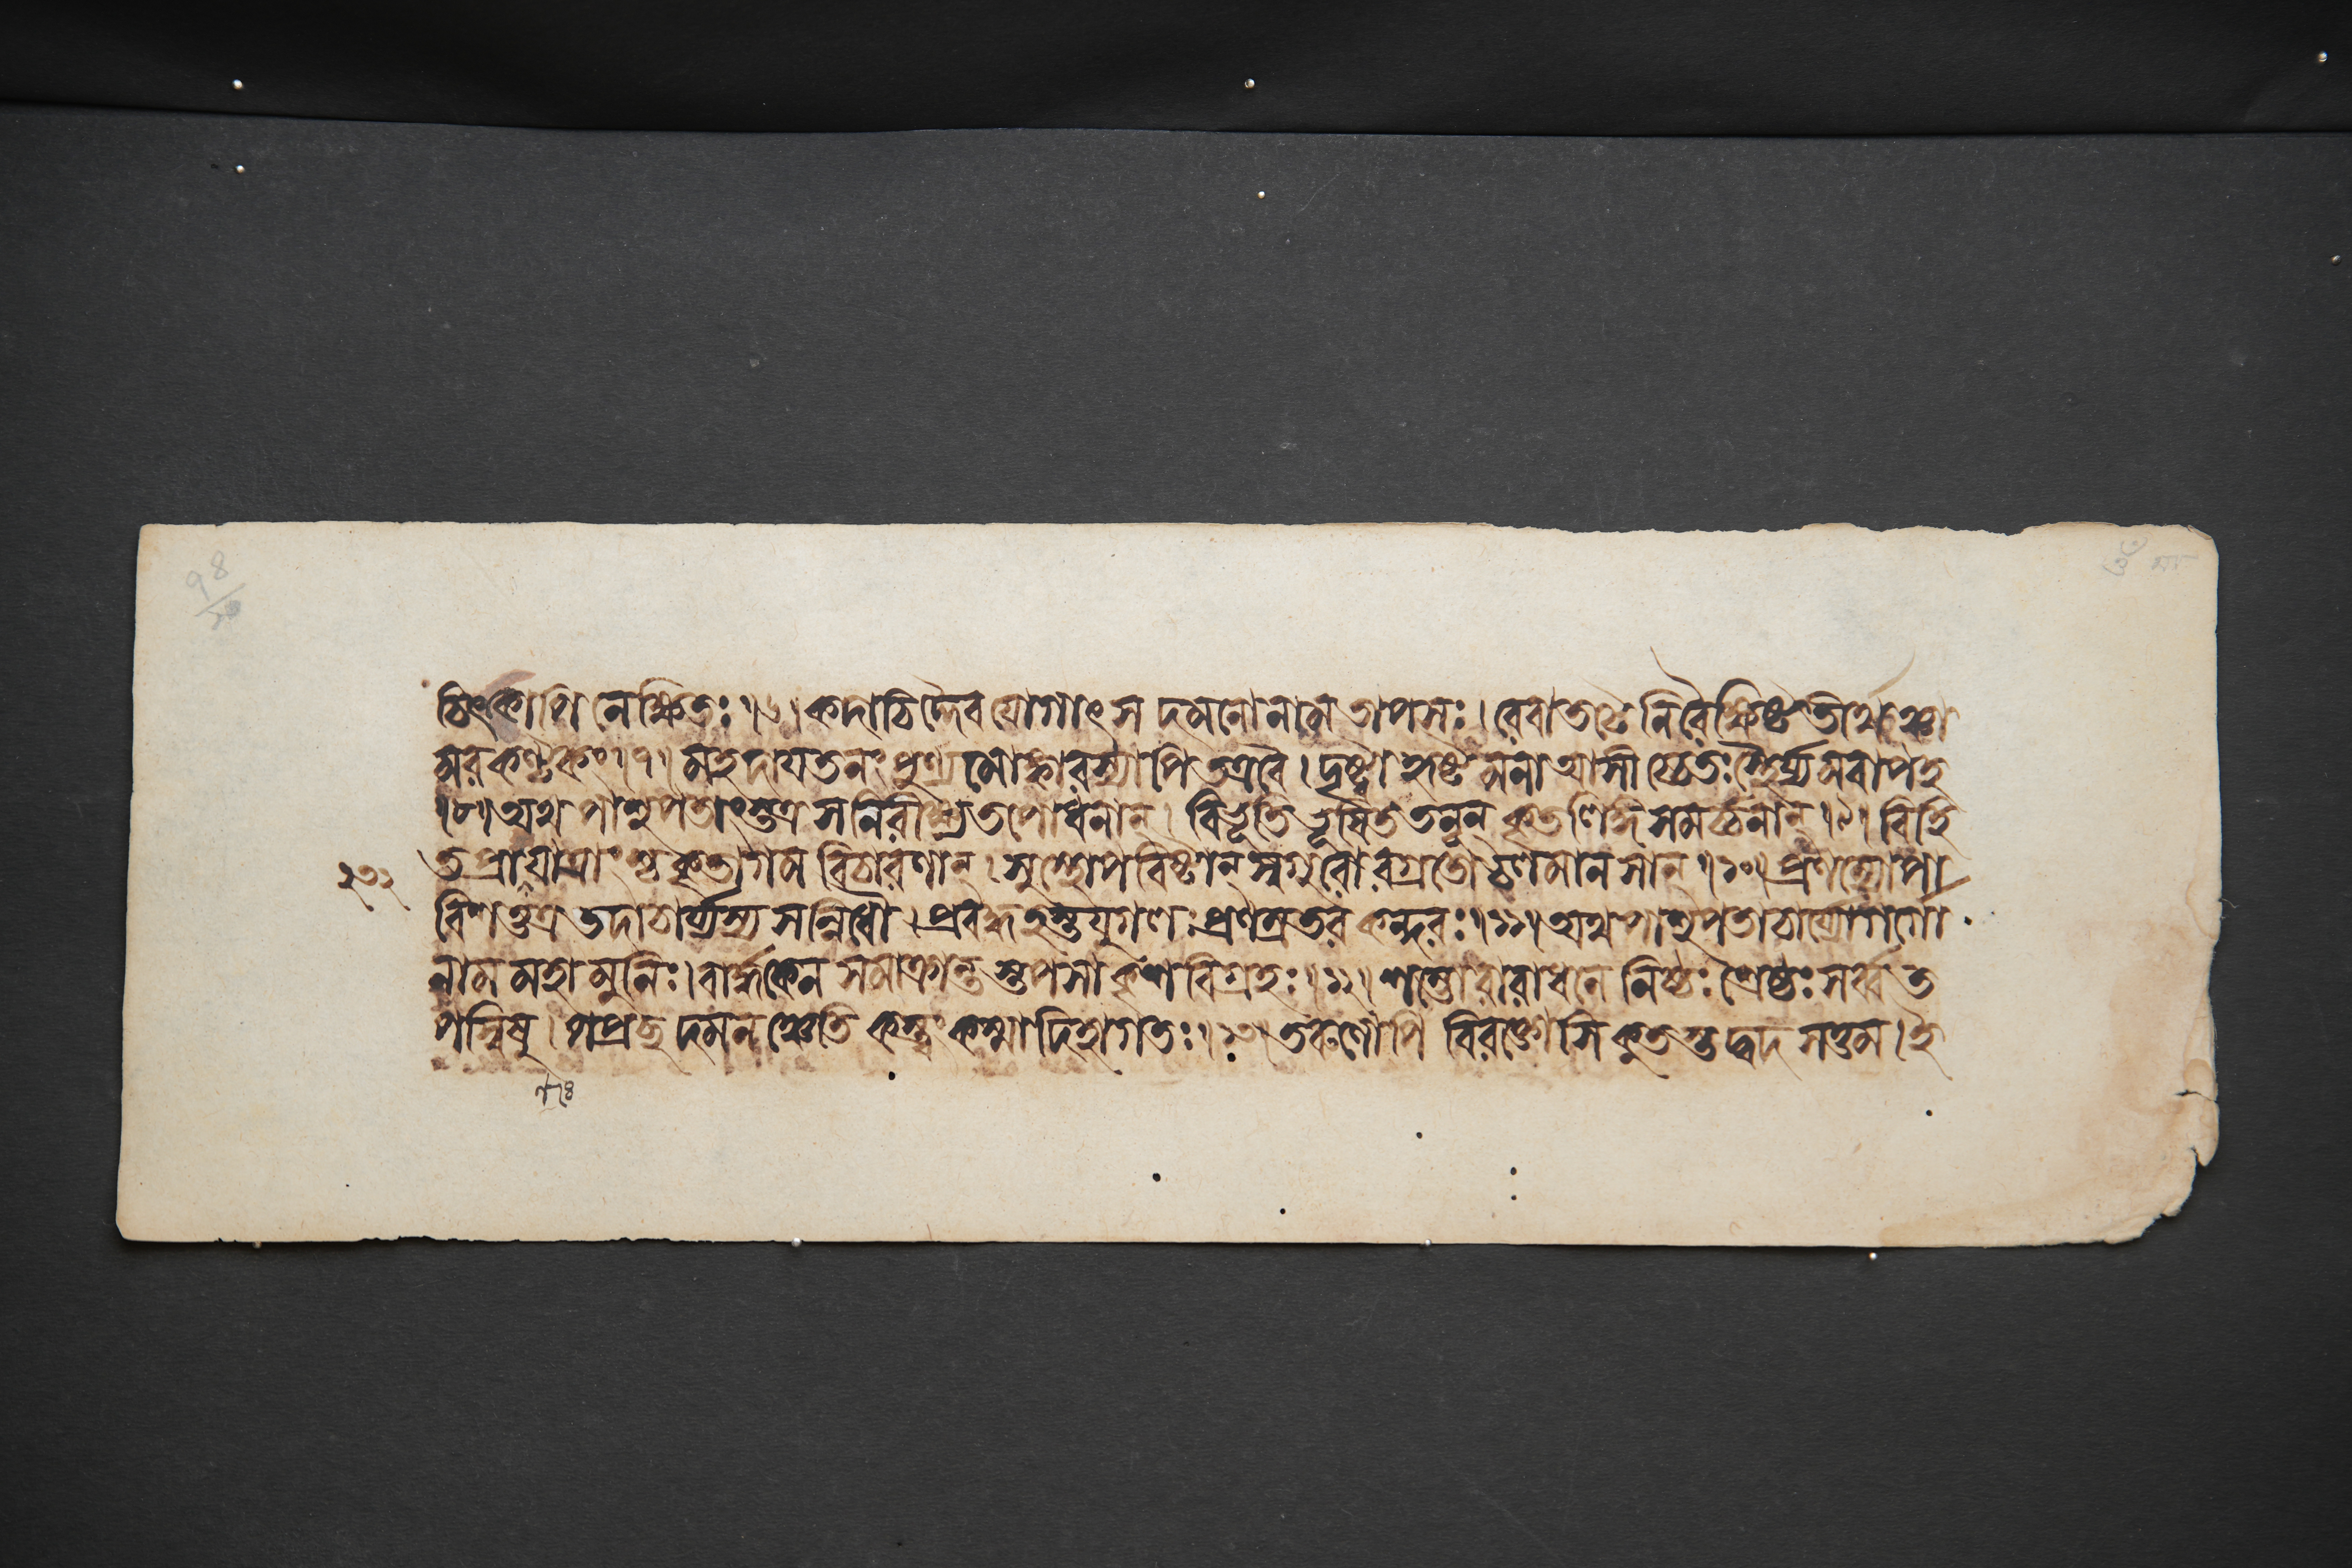 চিৎ ক্বাপি নেক্ষিতঃ ।৬। কদাচিদ্দৈবযোগাৎ স দমনো নাম তাপসঃ । রেবাতটে নিরৈক্ষিষ্ট তীর্থঞ্চা
মরকণ্টকং ।৭। মহদায়তনং পুণ্যমোঙ্কারস্যাপি তত্রবৈ । দৃষ্ট্বা হৃষ্টমনা আসীচ্চেতঃস্থৈর্য্যমবাপহ
।৮। অথ পাশুপতাংস্তত্র স নিরীক্ষ্য তপোধনান্ । বিভূতিভূষিততনূন্ কৃতলিঙ্গসমর্চনান্ ।৯। বিহি
তপ্রাণযাত্রাংশ্চ কৃতাগমবিচারণান্ । সুস্থোপবিষ্টান্ স্বগুরোরগ্রতো চলমানসান্ ।১০। প্রণম্যোপা
বিশত্তত্র তদাচার্য্যস্য সন্নিধৌ । প্রবদ্ধহস্তযুগলঃ প্রণম্রতরকন্ধরঃ ।১১। অথ পাশুপতাচার্য্যো গর্গো
নাম মহামুনিঃ । বার্দ্ধকেন সমাক্রান্তস্তপসা কৃশবিগ্রহঃ ।১২। শম্ভোরারাধনে নিষ্ঠঃ শ্রেষ্ঠঃ সর্ব্বত
পস্বিষু । পপ্রচ্ছ দমনঞ্চেতি কস্ত্বং কস্মাদিহাগতঃ ।১৩। তরুণোপি বিরক্তোসি কুতস্তদ্বদ সত্তম । ই
২৩২